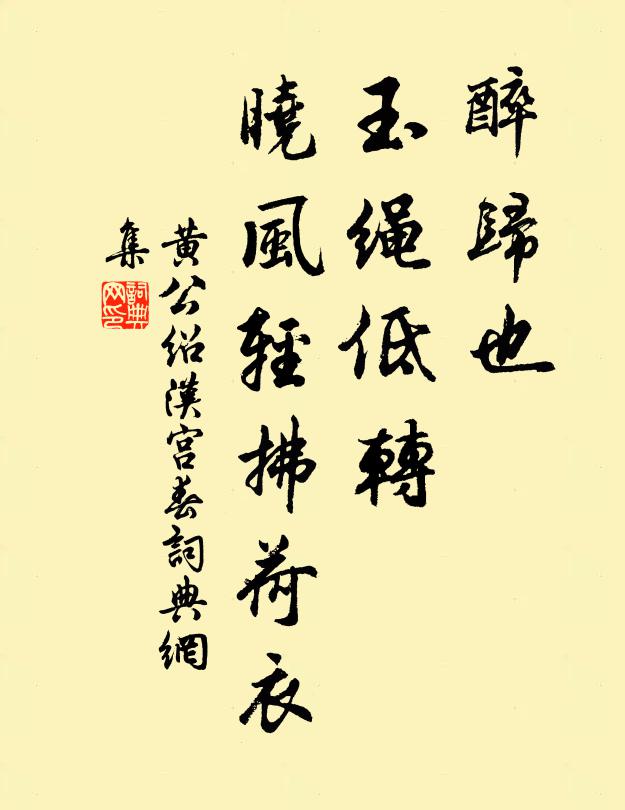 醉歸也
玉繩低轉
曉風輕拂荷衣
黃公紹漢宮春詞典網
集
詞典網印